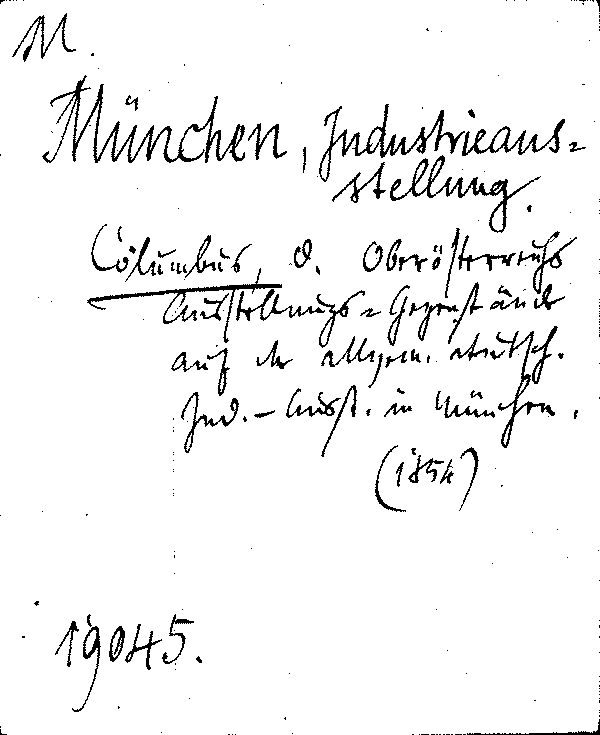 M.
München, Industrieaus-
stellung.
Columbus, d. Oberösterreichs
Ausstellungs-Gegenstände
auf der allgem. deutsch.
Ind.-Ausst. in München.
(1854)
19045.